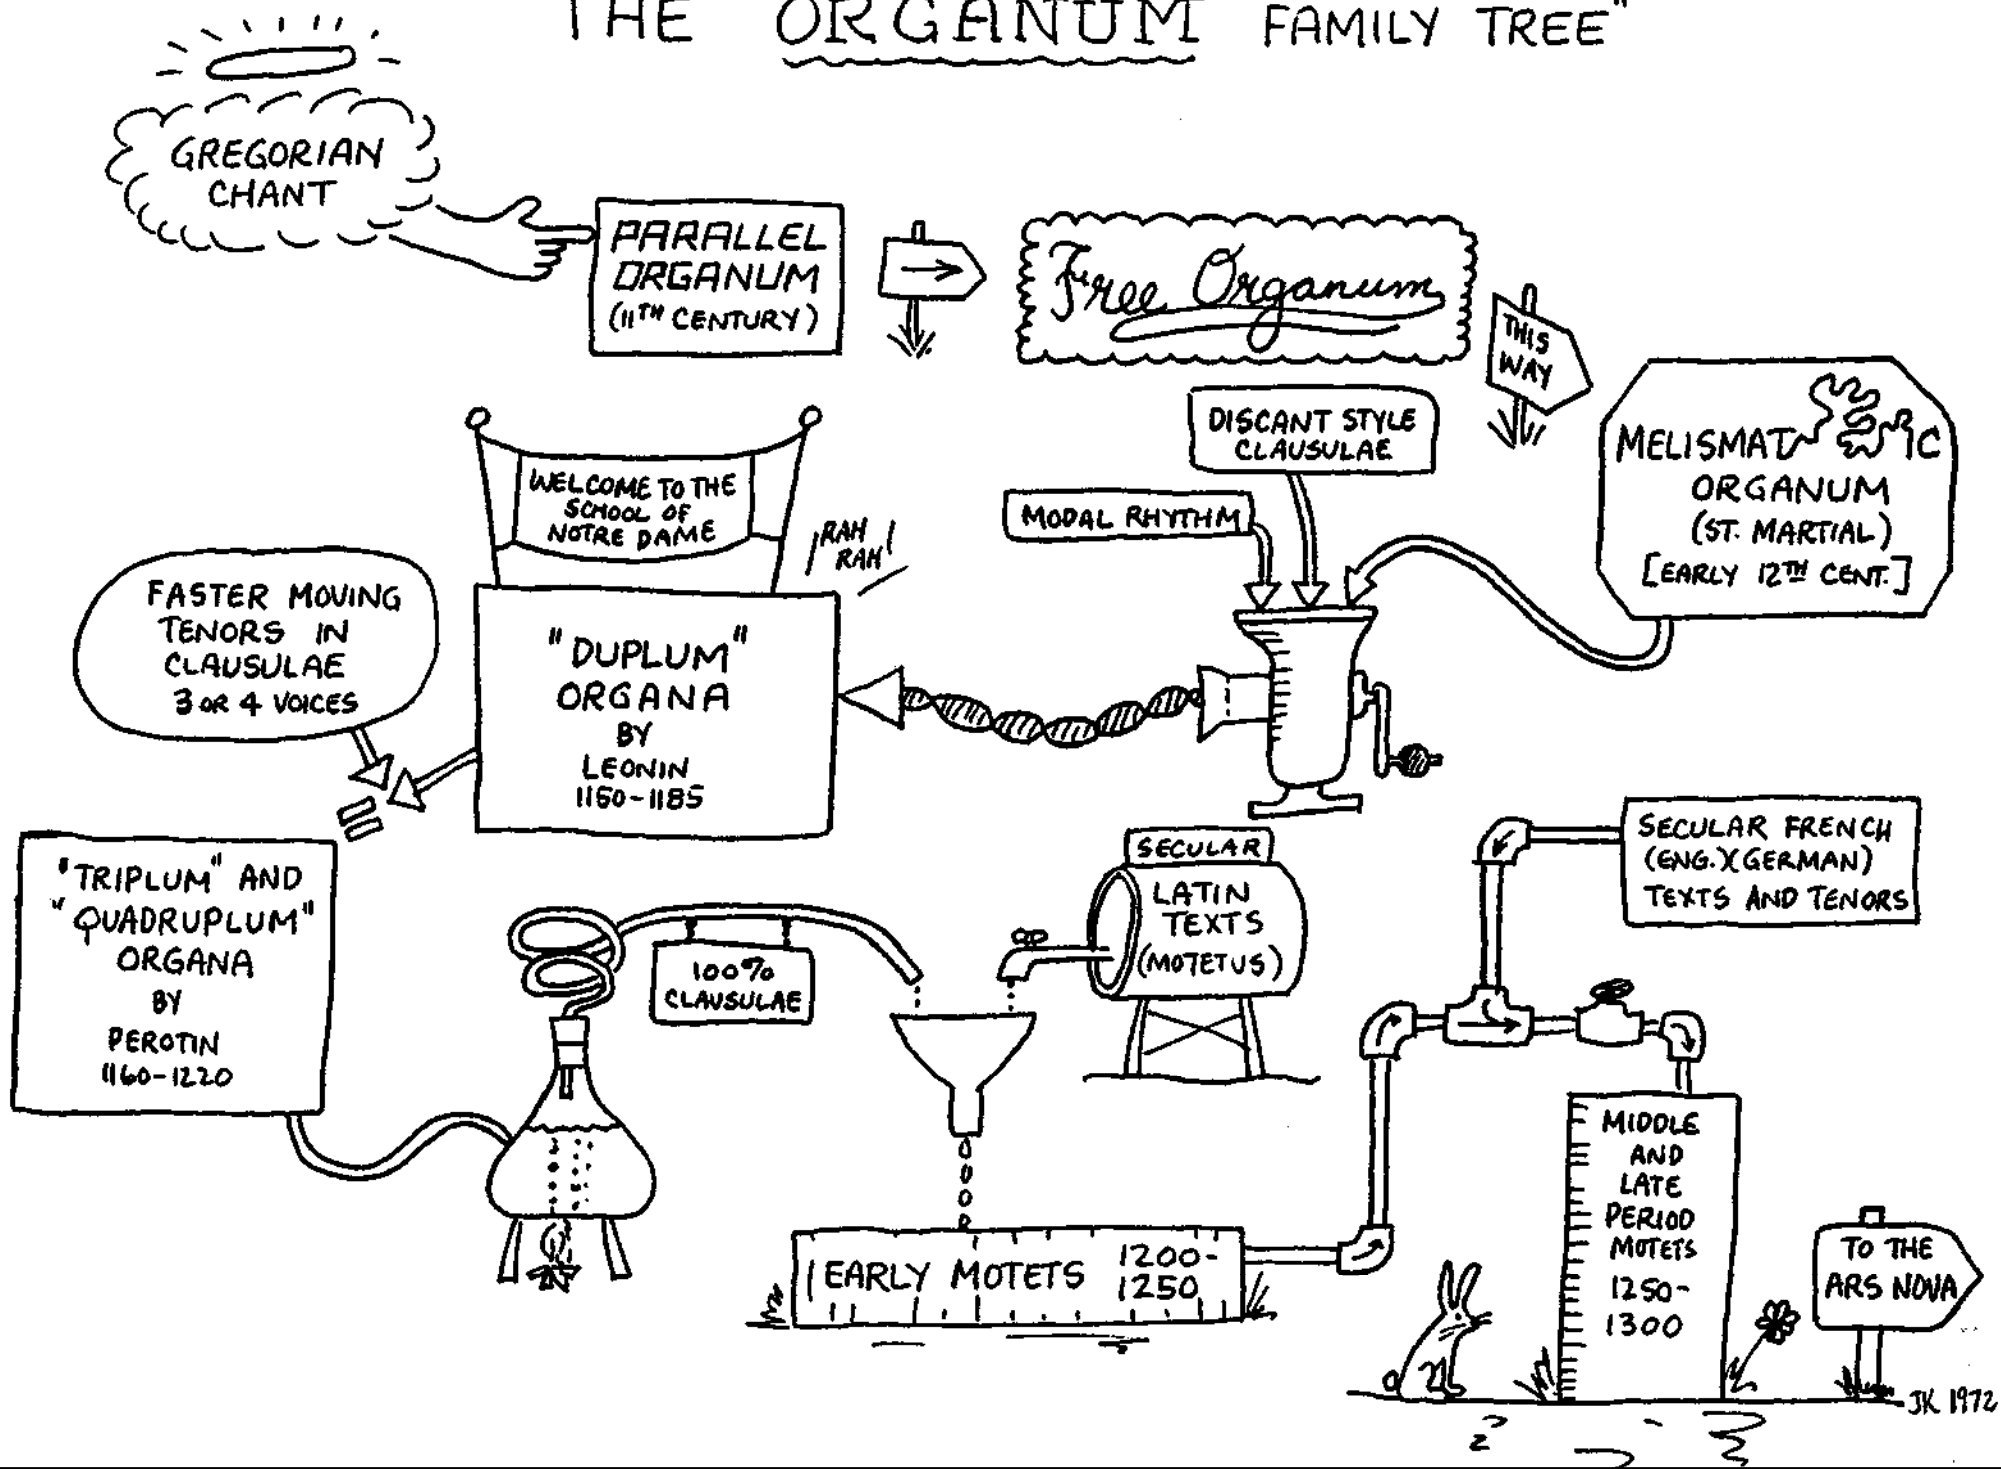 THE ORGANUM FAMILY TREE"
GREGORIAN
CHANT
PARALLEL
ORGANUM
(11TH CENTURY)
Free Organum
THIS
WAY
MELISMATIC
ORGANUM
(ST. MARTIAL)
[EARLY 12TH CENT.]
DISCANT STYLE
CLAUSULAE
MODAL RHYTHM
WELCOME TO THE
SCHOOL OF
NOTRE DAME
RAH
RAH!
"DUPLUM"
ORGANA
BY
LEONIN
1150-1185
FASTER MOVING
TENORS IN
CLAUSULAE
3 OR 4 VOICES
"TRIPLUM" AND
"QUADRUPLUM"
ORGANA
BY
PEROTIN
1160-1220
100%
CLAUSULAE
SECULAR
LATIN
TEXTS
(MOTETUS)
SECULAR FRENCH
(ENG.)(GERMAN)
TEXTS AND TENORS
EARLY MOTETS 1200-
1250
MIDDLE
AND
LATE
PERIOD
MOTETS
1250-
1300
TO THE
ARS NOVA
JK 1972